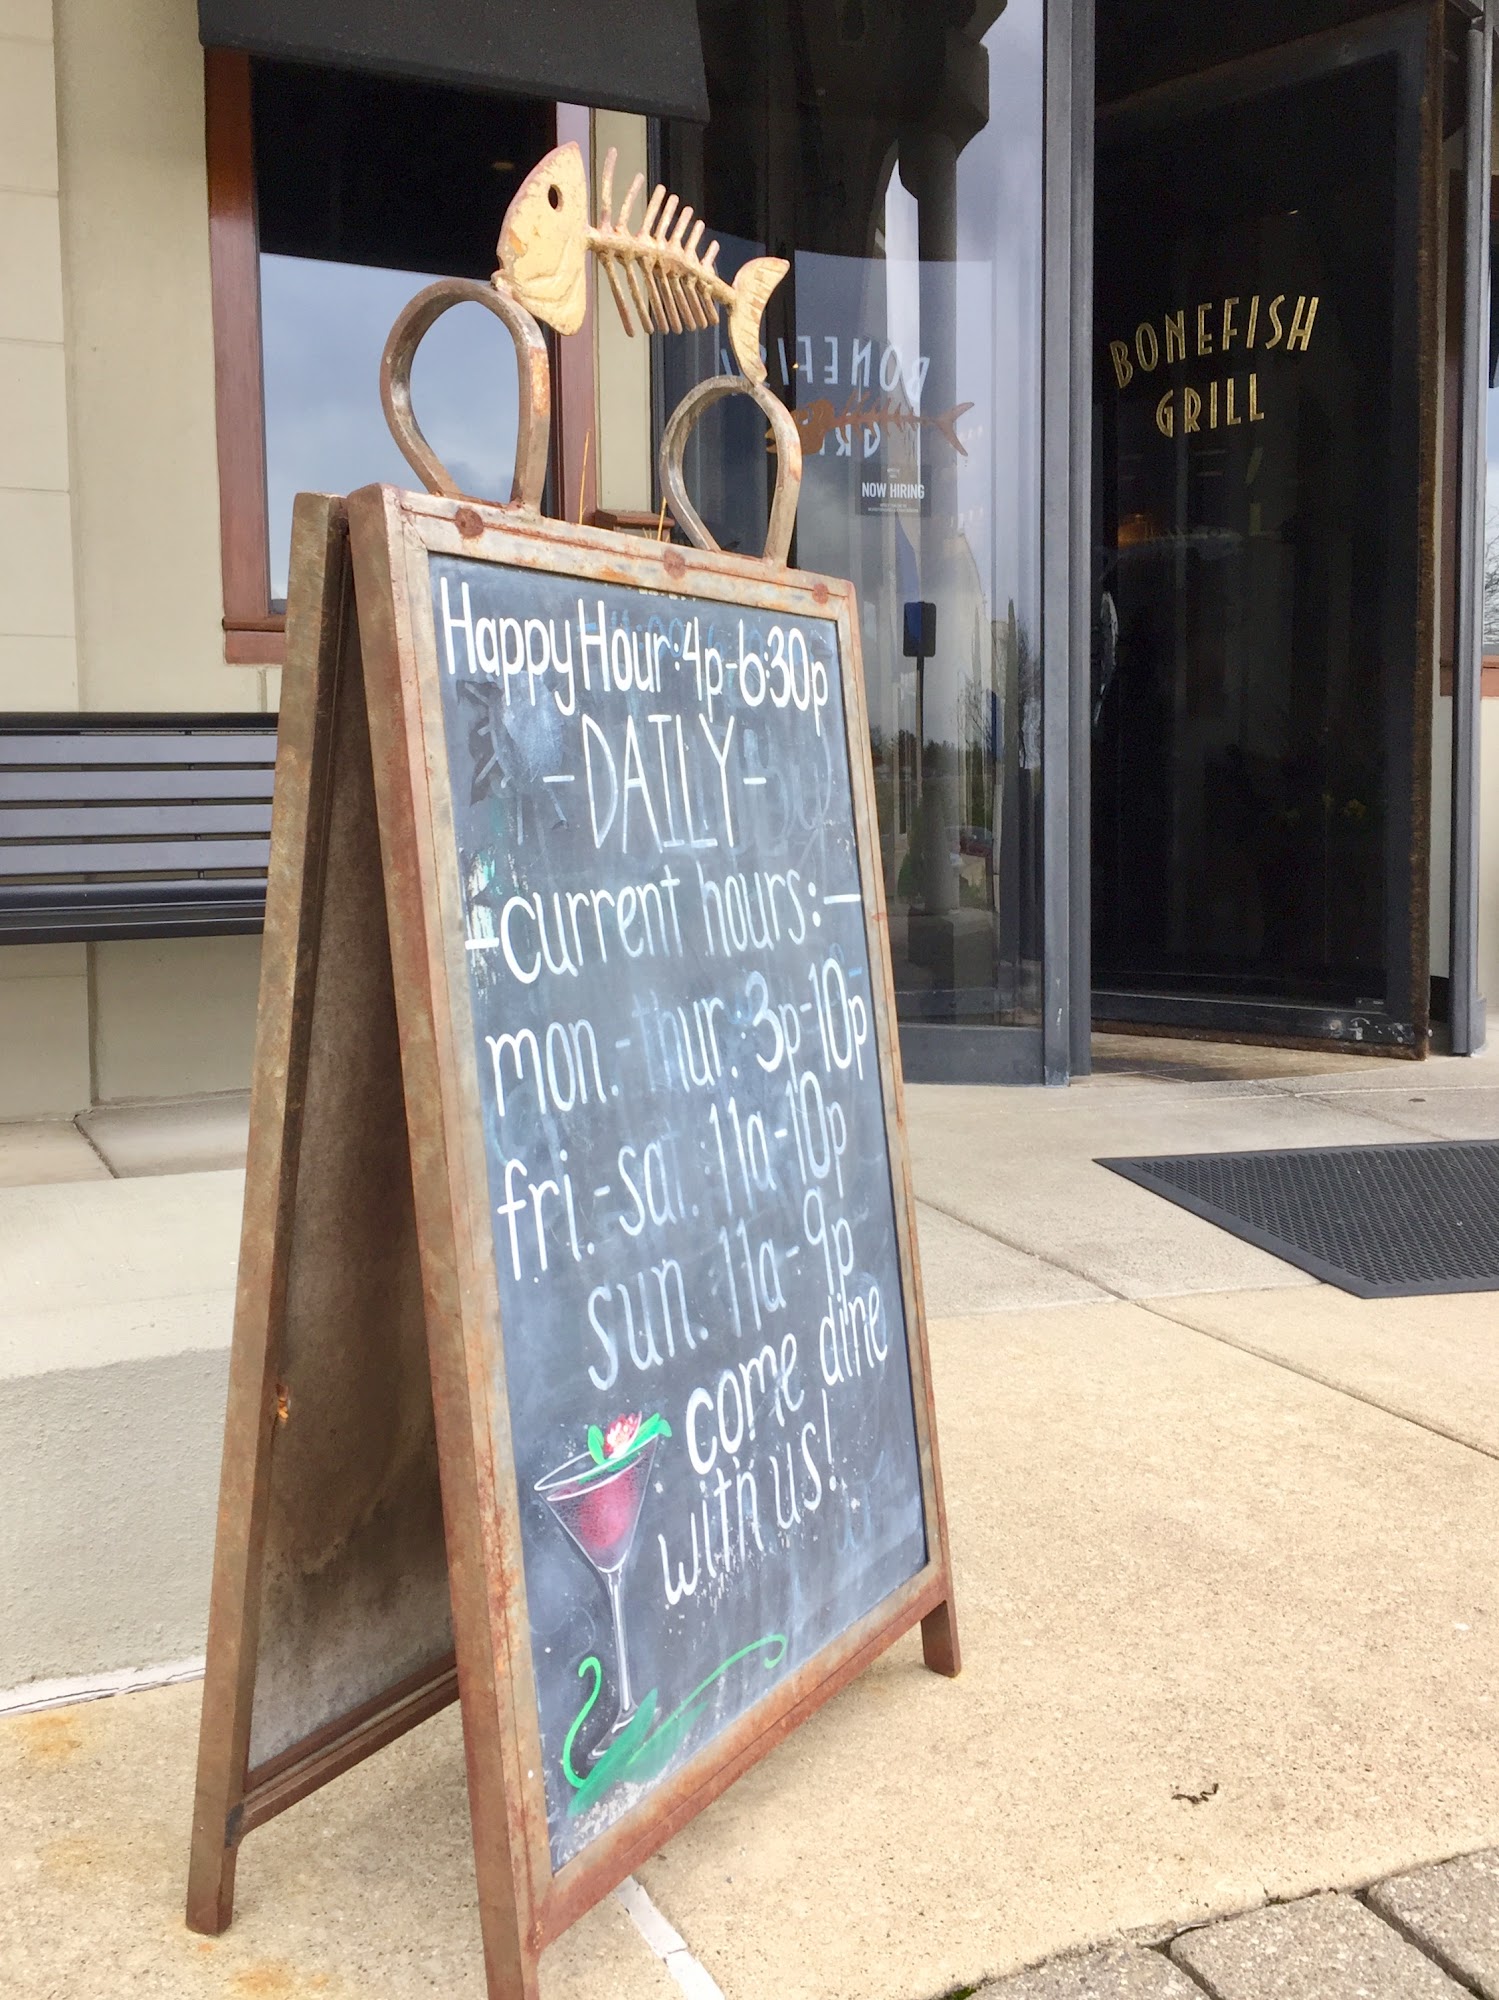 BONEFISH
GRILL
BONEFISH
NOW HIRING
Happy Hour: 4p-6:30p
-DAILY-
-current hours:-
mon.-thur.: 3p-10p
fri.-sat. 11a-10p
sun. 11a-9p
come dine
with us!